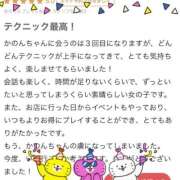 テクニック最高！
かのんちゃんに会うのは3回目になりますが、どん
どんテクニックが上手になってきて、とても気持ち
良く、楽しませてもらいました！
会話も楽しく、時間が足りないくらいで、ずっとい
たいと思ってしまうくらい素晴らしい女の子です。
また、お店に行った日からイベントもやっており、
いつもよりお得にプレイすることができ、とてもあ
りがたかったです。
もう、かのんちゃんの虜になってしまいました。
今度
ざいました！